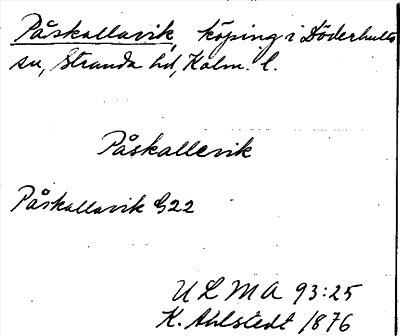 Påskallavik, köping i Döderhults
sn, Stranda hd, Kalm. l.
Påskallevik
Påskallavik G22
ULMA 93:25
K. Ahlstedt 1876